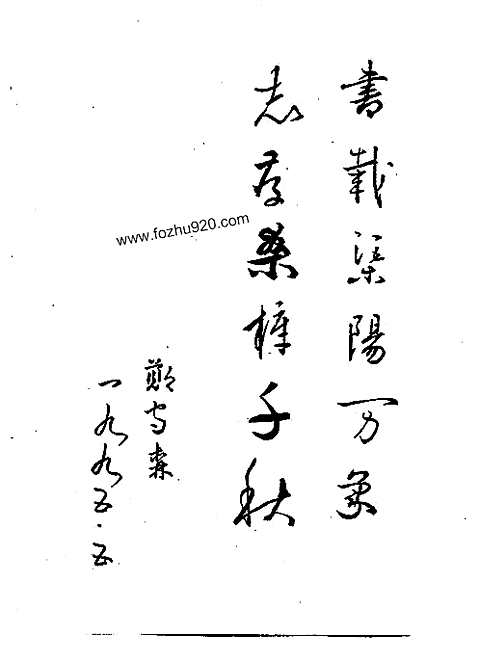 書載渠陽万象
志存桑梓千秋
鄭守森
一九九五·五
www.fozhu920.com